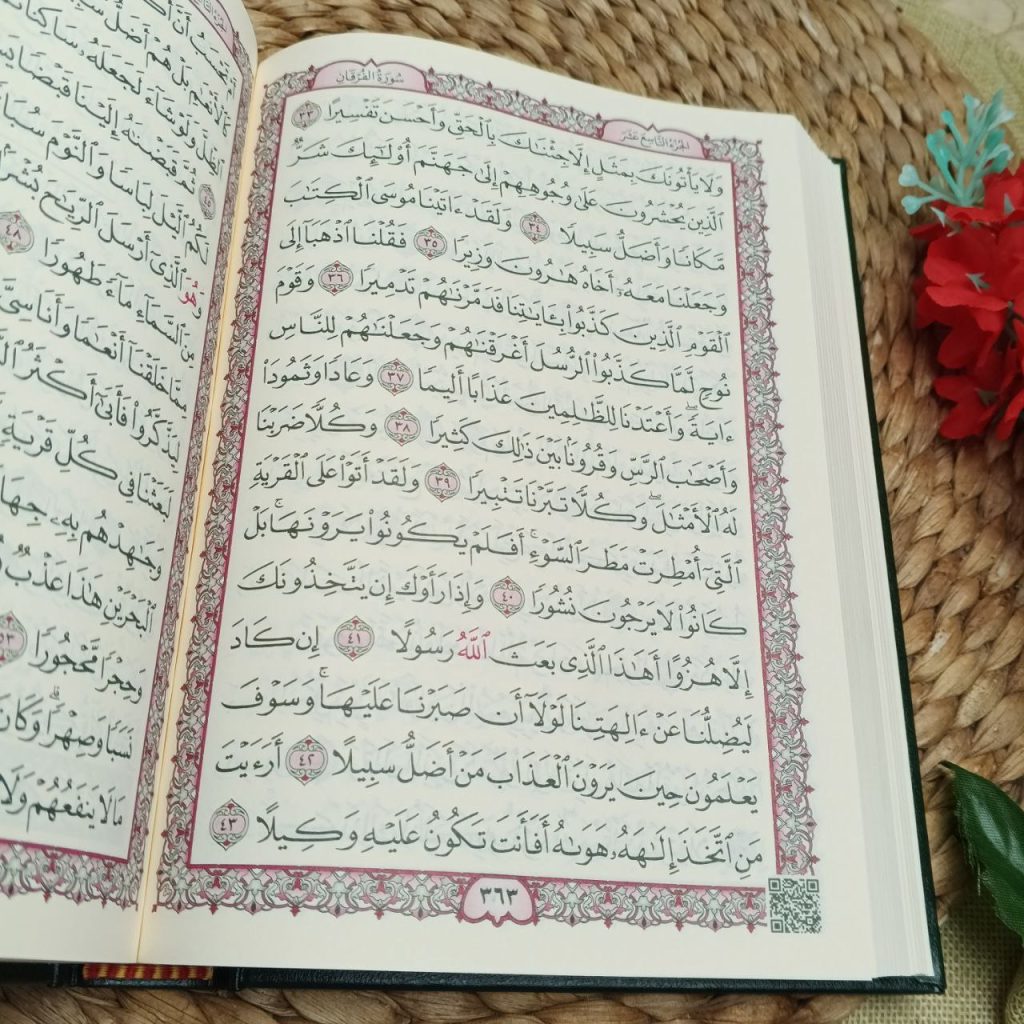 سُورَةُ الفُرْقَان
الجُزْءُ التَّاسِعَ عَشَرَ
وَلَا يَأْتُونَكَ بِمَثَلٍ إِلَّا جِئْنَٰكَ بِٱلْحَقِّ وَأَحْسَنَ تَفْسِيرًا ٣٣
ٱلَّذِينَ يُحْشَرُونَ عَلَىٰ وُجُوهِهِمْ إِلَىٰ جَهَنَّمَ أُو۟لَٰٓئِكَ شَرٌّ
مَّكَانًا وَأَضَلُّ سَبِيلًا ٣٤ وَلَقَدْ ءَاتَيْنَا مُوسَى ٱلْكِتَٰبَ
وَجَعَلْنَا مَعَهُۥٓ أَخَاهُ هَٰرُونَ وَزِيرًا ٣٥ فَقُلْنَا ٱذْهَبَآ إِلَى
ٱلْقَوْمِ ٱلَّذِينَ كَذَّبُوا۟ بِـَٔايَٰتِنَا فَدَمَّرْنَٰهُمْ تَدْمِيرًا ٣٦ وَقَوْمَ
نُوحٍ لَّمَّا كَذَّبُوا۟ ٱلرُّسُلَ أَغْرَقْنَٰهُمْ وَجَعَلْنَٰهُمْ لِلنَّاسِ
ءَايَةً ۖ وَأَعْتَدْنَا لِلظَّٰلِمِينَ عَذَابًا أَلِيمًا ٣٧ وَعَادًا وَثَمُودَا۟
وَأَصْحَٰبَ ٱلرَّسِّ وَقُرُونًۢا بَيْنَ ذَٰلِكَ كَثِيرًا ٣٨ وَكُلًّا ضَرَبْنَا
لَهُ ٱلْأَمْثَٰلَ ۖ وَكُلًّا تَبَّرْنَا تَتْبِيرًا ٣٩ وَلَقَدْ أَتَوْا۟ عَلَى ٱلْقَرْيَةِ
ٱلَّتِىٓ أُمْطِرَتْ مَطَرَ ٱلسَّوْءِ ۚ أَفَلَمْ يَكُونُوا۟ يَرَوْنَهَا ۚ بَلْ
كَانُوا۟ لَا يَرْجُونَ نُشُورًا ٤٠ وَإِذَا رَأَوْكَ إِن يَتَّخِذُونَكَ
إِلَّا هُزُوًا أَهَٰذَا ٱلَّذِى بَعَثَ ٱللَّهُ رَسُولًا ٤١ إِن كَادَ
لَيُضِلُّنَا عَنْ ءَالِهَتِنَا لَوْلَآ أَن صَبَرْنَا عَلَيْهَا ۚ وَسَوْفَ
يَعْلَمُونَ حِينَ يَرَوْنَ ٱلْعَذَابَ مَنْ أَضَلُّ سَبِيلًا ٤٢ أَرَءَيْتَ
مَنِ ٱتَّخَذَ إِلَٰهَهُۥ هَوَىٰهُ أَفَأَنتَ تَكُونُ عَلَيْهِ وَكِيلًا ٤٣
٣٦٣
تَحْسَبُ أَنَّ
كَٱلْأَنْعَٰمِ بَلْ هُمْ أَضَلُّ
ٱلظِّلَّ وَلَوْ شَآءَ لَجَعَلَهُۥ
ثُمَّ قَبَضْنَٰهُ إِلَيْنَا قَبْضًا
لَكُمُ ٱلَّيْلَ لِبَاسًا وَٱلنَّوْمَ
وَهُوَ ٱلَّذِىٓ أَرْسَلَ ٱلرِّيَٰحَ
مِنَ ٱلسَّمَآءِ مَآءً طَهُورًا ٤٨
مِمَّا خَلَقْنَآ أَنْعَٰمًا وَأَنَاسِىَّ
لِيَذَّكَّرُوا۟ فَأَبَىٰٓ أَكْثَرُ
لَبَعَثْنَا فِى كُلِّ قَرْيَةٍ
وَجَٰهِدْهُم بِهِۦ
ٱلْبَحْرَيْنِ هَٰذَا عَذْبٌ
وَحِجْرًا مَّحْجُورًا ٥٣
نَسَبًا وَصِهْرًا ۗ وَكَانَ
مَا لَا يَنفَعُهُمْ وَلَا